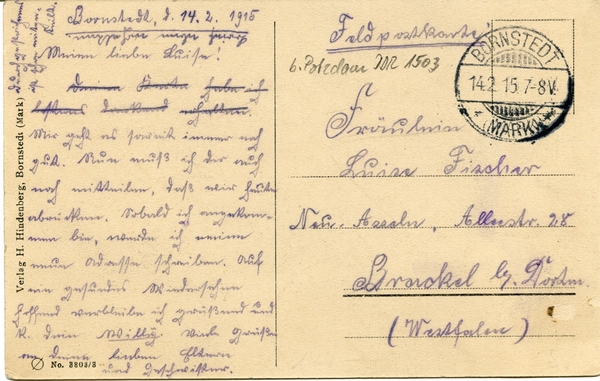 Bornstedt, d. 14.2.1915
Meine liebe Luise!
Deine Karte habe ich
bestens dankend erhalten.
Mir geht es soweit immer noch
gut. Nun muß ich dir auch
noch mitteilen, daß wir heute
abrücken. Sobald ich angekom-
men bin, werde ich meine
neue Adresse schreiben. Auf
ein gesundes Wiedersehen
hoffend verbleibe ich grüßend und
k. dein Willy. Viele Grüße
an deine lieben Eltern
und Geschwister.
Verlag H. Hindenberg, Bornstedt (Mark)
No. 3803/3
Feldpostkarte!
b. Potsdam NR 1503
BORNSTEDT
14.2.15.7-8V.
(MARK)
Fräulein
Luise Fischer
Neu-Asseln, Allestr. 28
Brackel bg. Dortm.
(Westfalen)